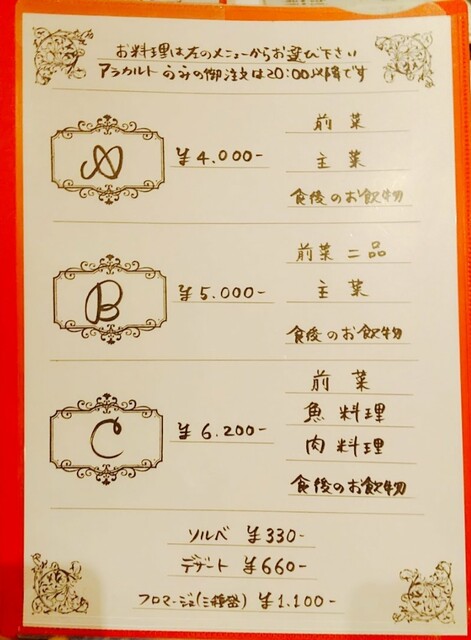 お料理は左のメニューからお選び下さい
アラカルトのみの御注文は20:00以降です
A ¥4.000-
前菜
主菜
食後のお飲物
B ¥5.000-
前菜二品
主菜
食後のお飲物
C ¥6.200-
前菜
魚料理
肉料理
食後のお飲物
ソルベ ¥330-
デザート ¥660-
フロマージュ(三種盛) ¥1.100-